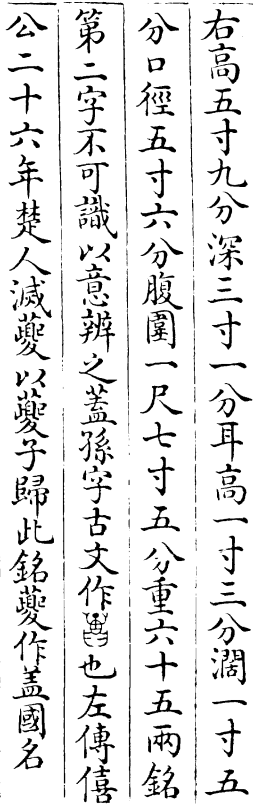 右高五寸九分深三寸一分耳高一寸三分濶一寸五
分口徑五寸六分腹圍一尺七寸五分重六十五兩銘
第二字不可識以意辨之蓋孫字古文作也左傳僖
公二十六年楚人滅夔以夔子歸此銘夔作蓋國名